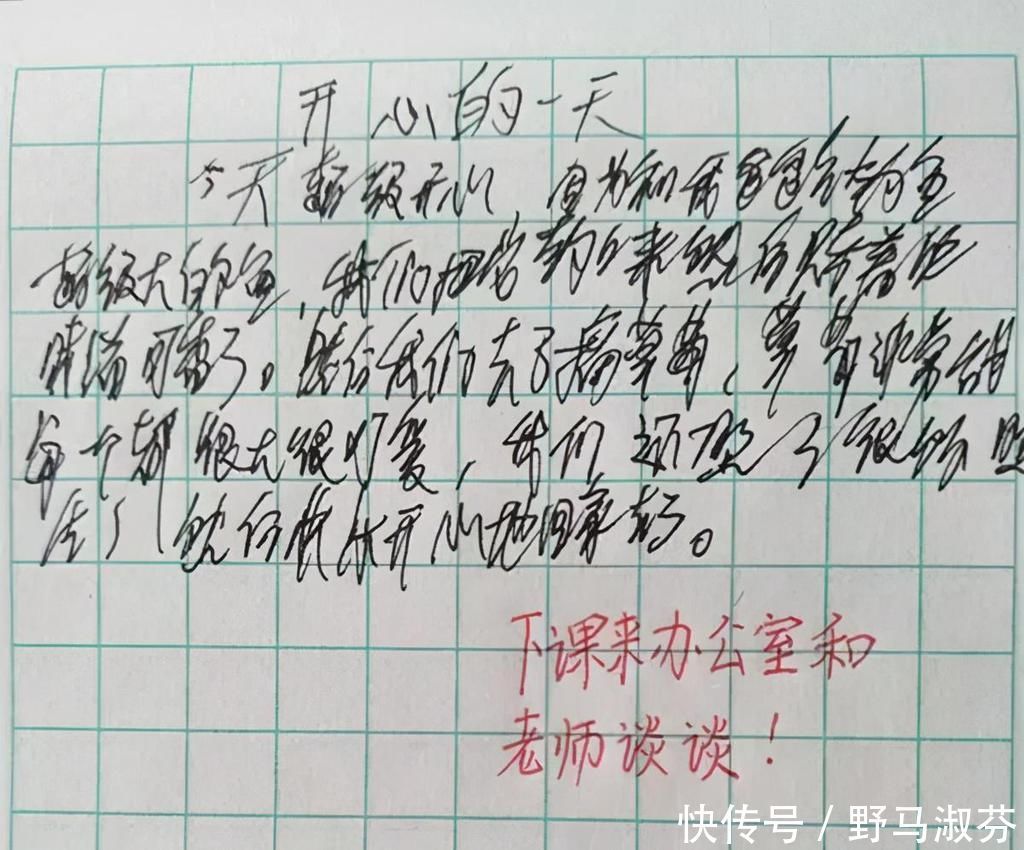 开心的一天
今天超级开心,因为和我爸爸去钓鱼
超级大的鱼,我们把它钓上来,然后
了。随后我们去了摘草莓,草莓非常甜
每个都很大很可爱,我们还 了很多照
片 然后我们开心地回家了。
下课来办公室和
老师谈谈!
快传号 / 野马淑芬